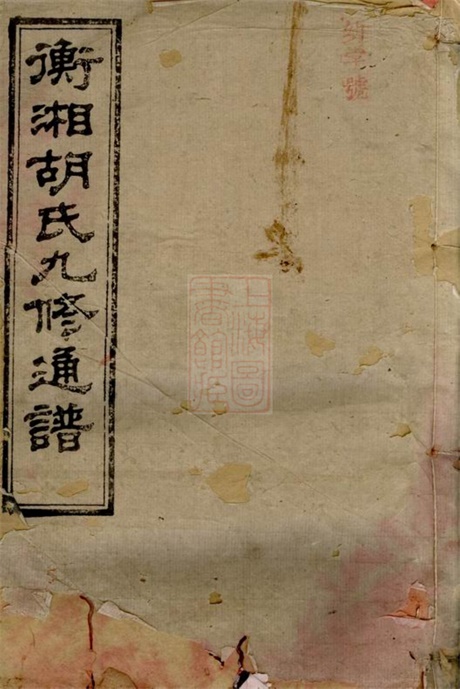 字號
上海圖
書館藏
衡湘胡氏九修通譜